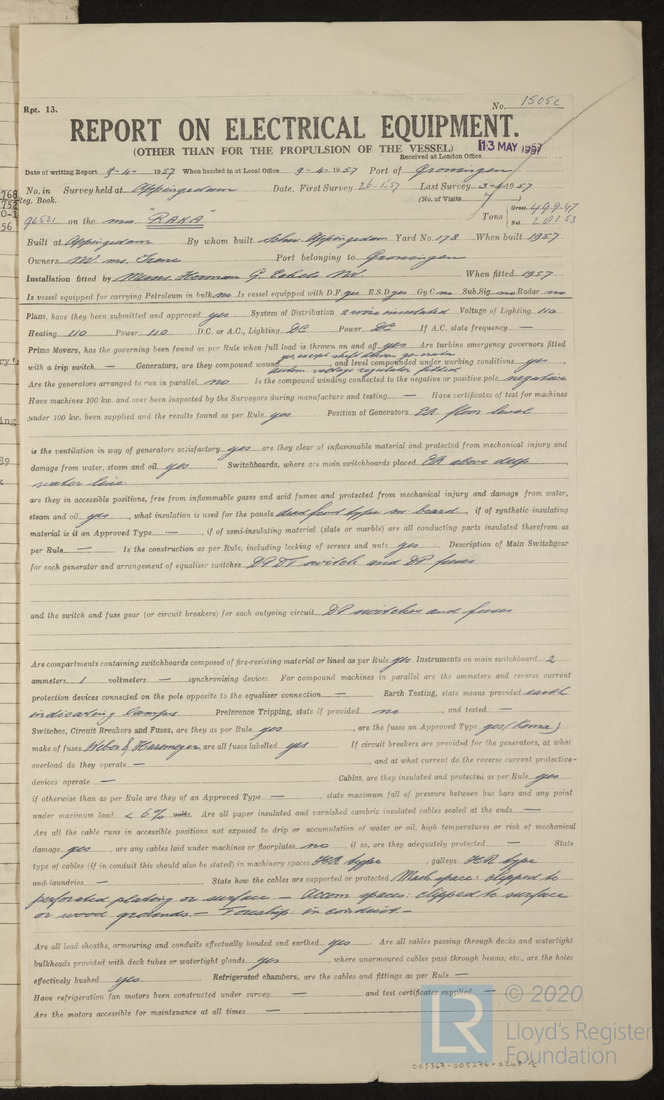 Rpt. 13.
No. 1505c
REPORT ON ELECTRICAL EQUIPMENT.
(OTHER THAN FOR THE PROPULSION OF THE VESSEL)
13 MAY 1957
Received at London Office
Date of writing Report 9-4- 1957 When handed in at Local Office 9-4-1957 Port of Groningen
No. in Survey held at Appingedam Date, First Survey 26-1-57 Last Survey 3-4-1957
Reg. Book. (No. of Visits 7 )
92521 on the m.v. "RAHA" Tons Gross Net
Built at Appingedam By whom built Schev. Appingedam Yard No. 178 When built 1957
Owners Port belonging to Groningen
Installation fitted by Messrs Herman G. When fitted 1957
Is vessel equipped for carrying Petroleum in bulk no Is vessel equipped with D.F. yes E.S.D. yes Gy.C. no Sub.Sig. no Radar no
Plans, have they been submitted and approved yes System of Distribution 2 wire insulated Voltage of Lighting 110
Heating 110 Power 110 D.C. or A.C., Lighting DC Power DC If A.C. state frequency —
Prime Movers, has the governing been found as per Rule when full load is thrown on and off yes Are turbine emergency governors fitted
yes, except shaft driven generator
with a trip switch — Generators, are they compound wound and level compounded under working conditions yes
autom. voltage regulator fitted
Are the generators arranged to run in parallel no Is the compound winding connected to the negative or positive pole negative
Have machines 100 kw. and over been inspected by the Surveyors during manufacture and testing — Have certificates of test for machines
under 100 kw. been supplied and the results found as per Rule yes Position of Generators ER floor level
is the ventilation in way of generators satisfactory yes are they clear of inflammable material and protected from mechanical injury and
damage from water, steam and oil yes Switchboards, where are main switchboards placed ER above deep
water line
are they in accessible positions, free from inflammable gases and acid fumes and protected from mechanical injury and damage from water,
steam and oil yes, what insulation is used for the panels dead front type sw. board, if of synthetic insulating
material is it an Approved Type —, if of semi-insulating material (slate or marble) are all conducting parts insulated therefrom as
per Rule — Is the construction as per Rule, including locking of screws and nuts yes Description of Main Switchgear
for each generator and arrangement of equaliser switches DPDT switch and DP fuses
and the switch and fuse gear (or circuit breakers) for each outgoing circuit DP switches and fuses
Are compartments containing switchboards composed of fire-resisting material or lined as per Rule yes Instruments on main switchboard 2
ammeters 1 voltmeters — synchronising devices. For compound machines in parallel are the ammeters and reverse current
protection devices connected on the pole opposite to the equaliser connection — Earth Testing, state means provided earth
indicating lamps Preference Tripping, state if provided no, and tested —
Switches, Circuit Breakers and Fuses, are they as per Rule yes, are the fuses an Approved Type yes (Kema)
make of fuses Weber & Hazemeyer, are all fuses labelled yes If circuit breakers are provided for the generators, at what
overload do they operate —, and at what current do the reverse current protective-
devices operate — Cables, are they insulated and protected as per Rule yes
if otherwise than as per Rule are they of an Approved Type —, state maximum fall of pressure between bus bars and any point
under maximum load < 6% volts. Are all paper insulated and varnished cambric insulated cables sealed at the ends —
Are all the cable runs in accessible positions not exposed to drip or accumulation of water or oil, high temperatures or risk of mechanical
damage yes, are any cables laid under machines or floorplates no, if so, are they adequately protected — State
type of cables (if in conduit this should also be stated) in machinery spaces HR type, galleys HR type
and laundries — State how the cables are supported or protected Mach. space: clipped to
perforated plating or surface — Accom. spaces: clipped to surface
or wood grounds — in conduit —
Are all lead sheaths, armouring and conduits effectually bonded and earthed yes Are all cables passing through decks and watertight
bulkheads provided with deck tubes or watertight glands yes, where unarmoured cables pass through beams, etc., are the holes
effectively bushed yes Refrigerated chambers, are the cables and fittings as per Rule —
Have refrigeration fan motors been constructed under survey — and test certificates supplied —
Are the motors accessible for maintenance at all times —
LR © 2020
Lloyd's Register
Foundation